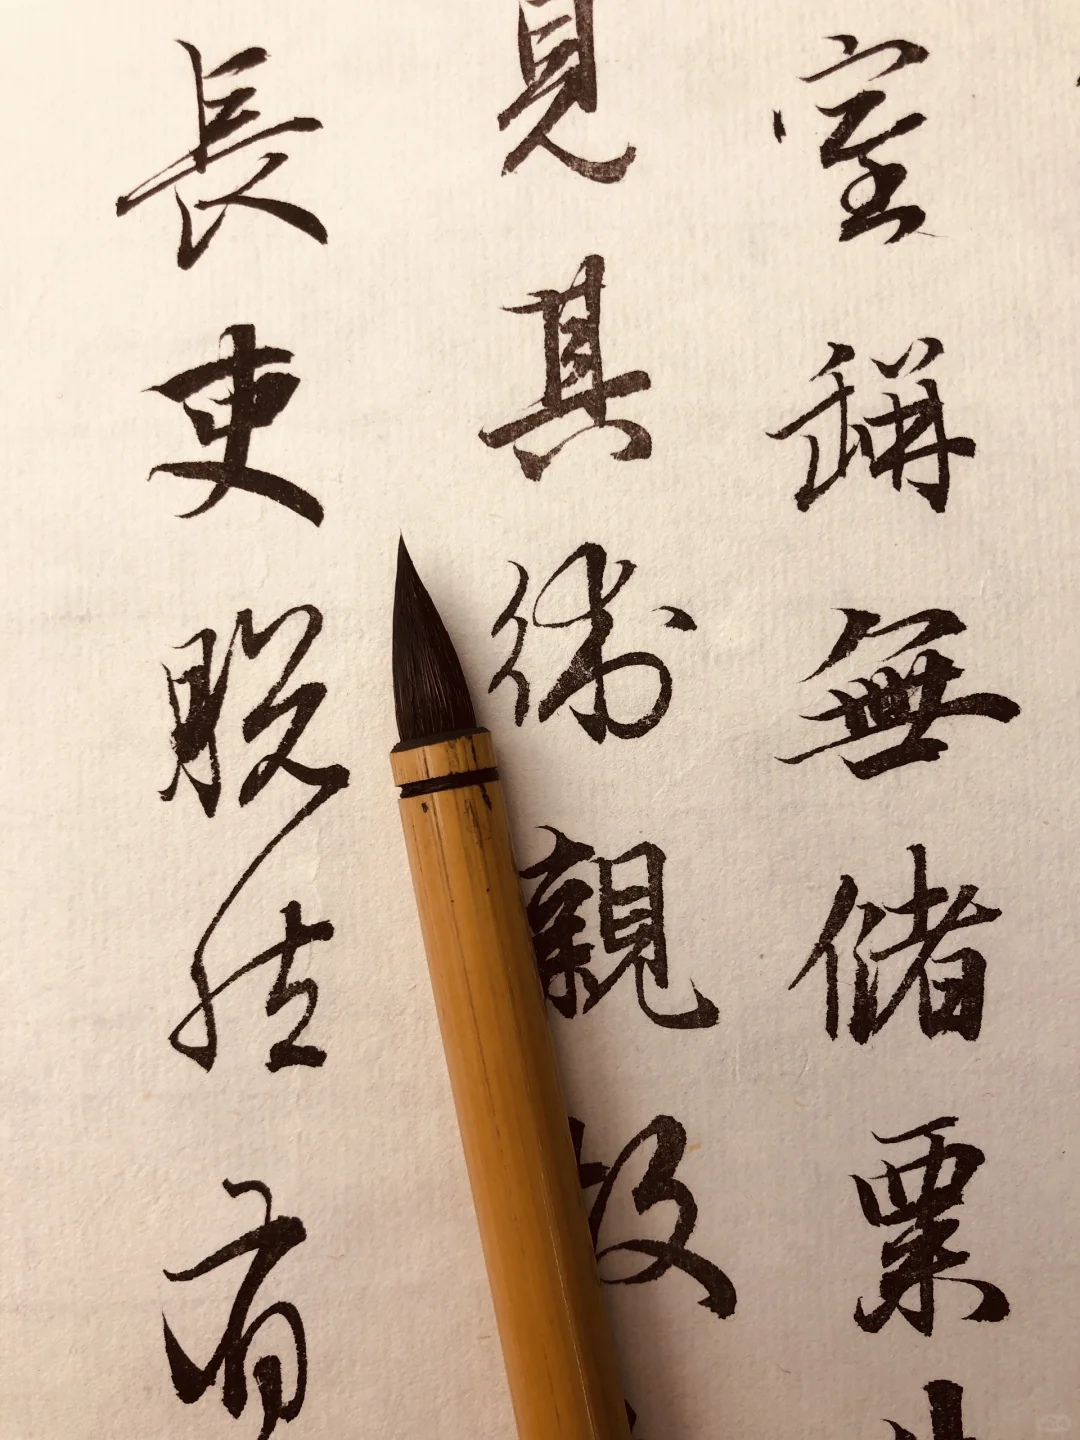 室缾無儲粟
見其術親故
長吏脫然有